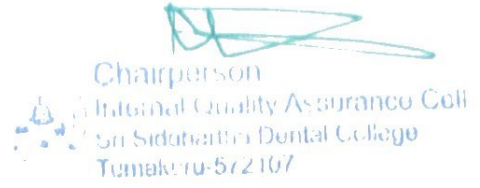 Chairperson
Internal Quality Assurance Cell
Sri Siddhartha Dental College
Tumakuru-572107